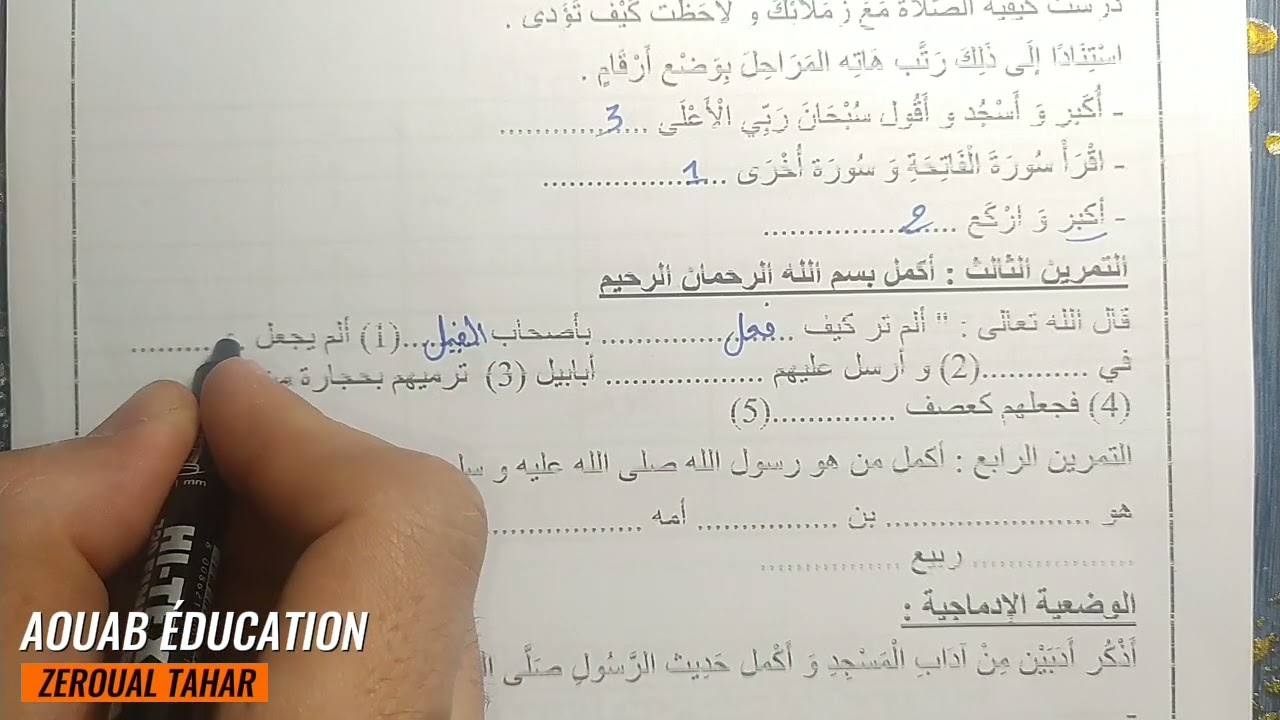 درست كيفية الصلاة مَعَ زُمَلَائِكَ و لَاحَظْتَ كَيْفَ تُؤَدى .
اسْتِنَادًا إِلَى ذَلِكَ رَتَّب هَاتِه المَرَاحِلَ بِوَضْع أَرْقَامٍ .
- أُكَبِر وَ أَسْجُد و أَقُول سُبْحَانَ رَبِّي الْأَعْلَى ......3.............
- اقْرَأْ سُورَةَ الْفَاتِحَةِ وَ سُورَة أُخْرَى ....1..................
- أكَبِر وَ ارْكَع ....2..................
التمرين الثالث : أكمل بسم الله الرحمان الرحيم
قال الله تعالى : " ألم تر كيف ....فعل............... بأصحاب الفيل...(1) ألم يجعل ..............
في ............(2) و أرسل عليهم .................. أبابيل (3) ترميهم بحجارة
(4) فجعلهم كعصف .............(5)
التمرين الرابع : أكمل من هو رسول الله صلى الله عليه و
هو ....................... بن ................ أمه .................
.................. ربيع ................
الوضعية الإدماجية :
أَذْكُر أَدَبَيْن مِنْ آدَابِ الْمَسْجِدِ وَ أَكْمل حَدِيث الرَّسُولِ صَلَّى
-
HI-T
mm
AOUAB ÉDUCATION
ZEROUAL TAHAR